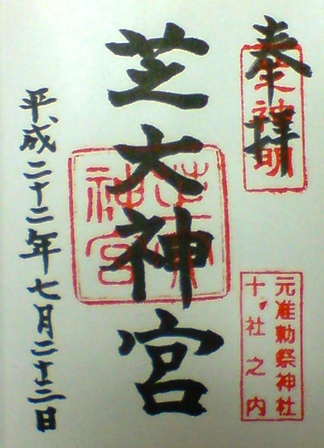 奉拝
芝神明
元准勅祭神社
十社之内
芝大神宮
芝大神宮
平成二十二年七月二十三日